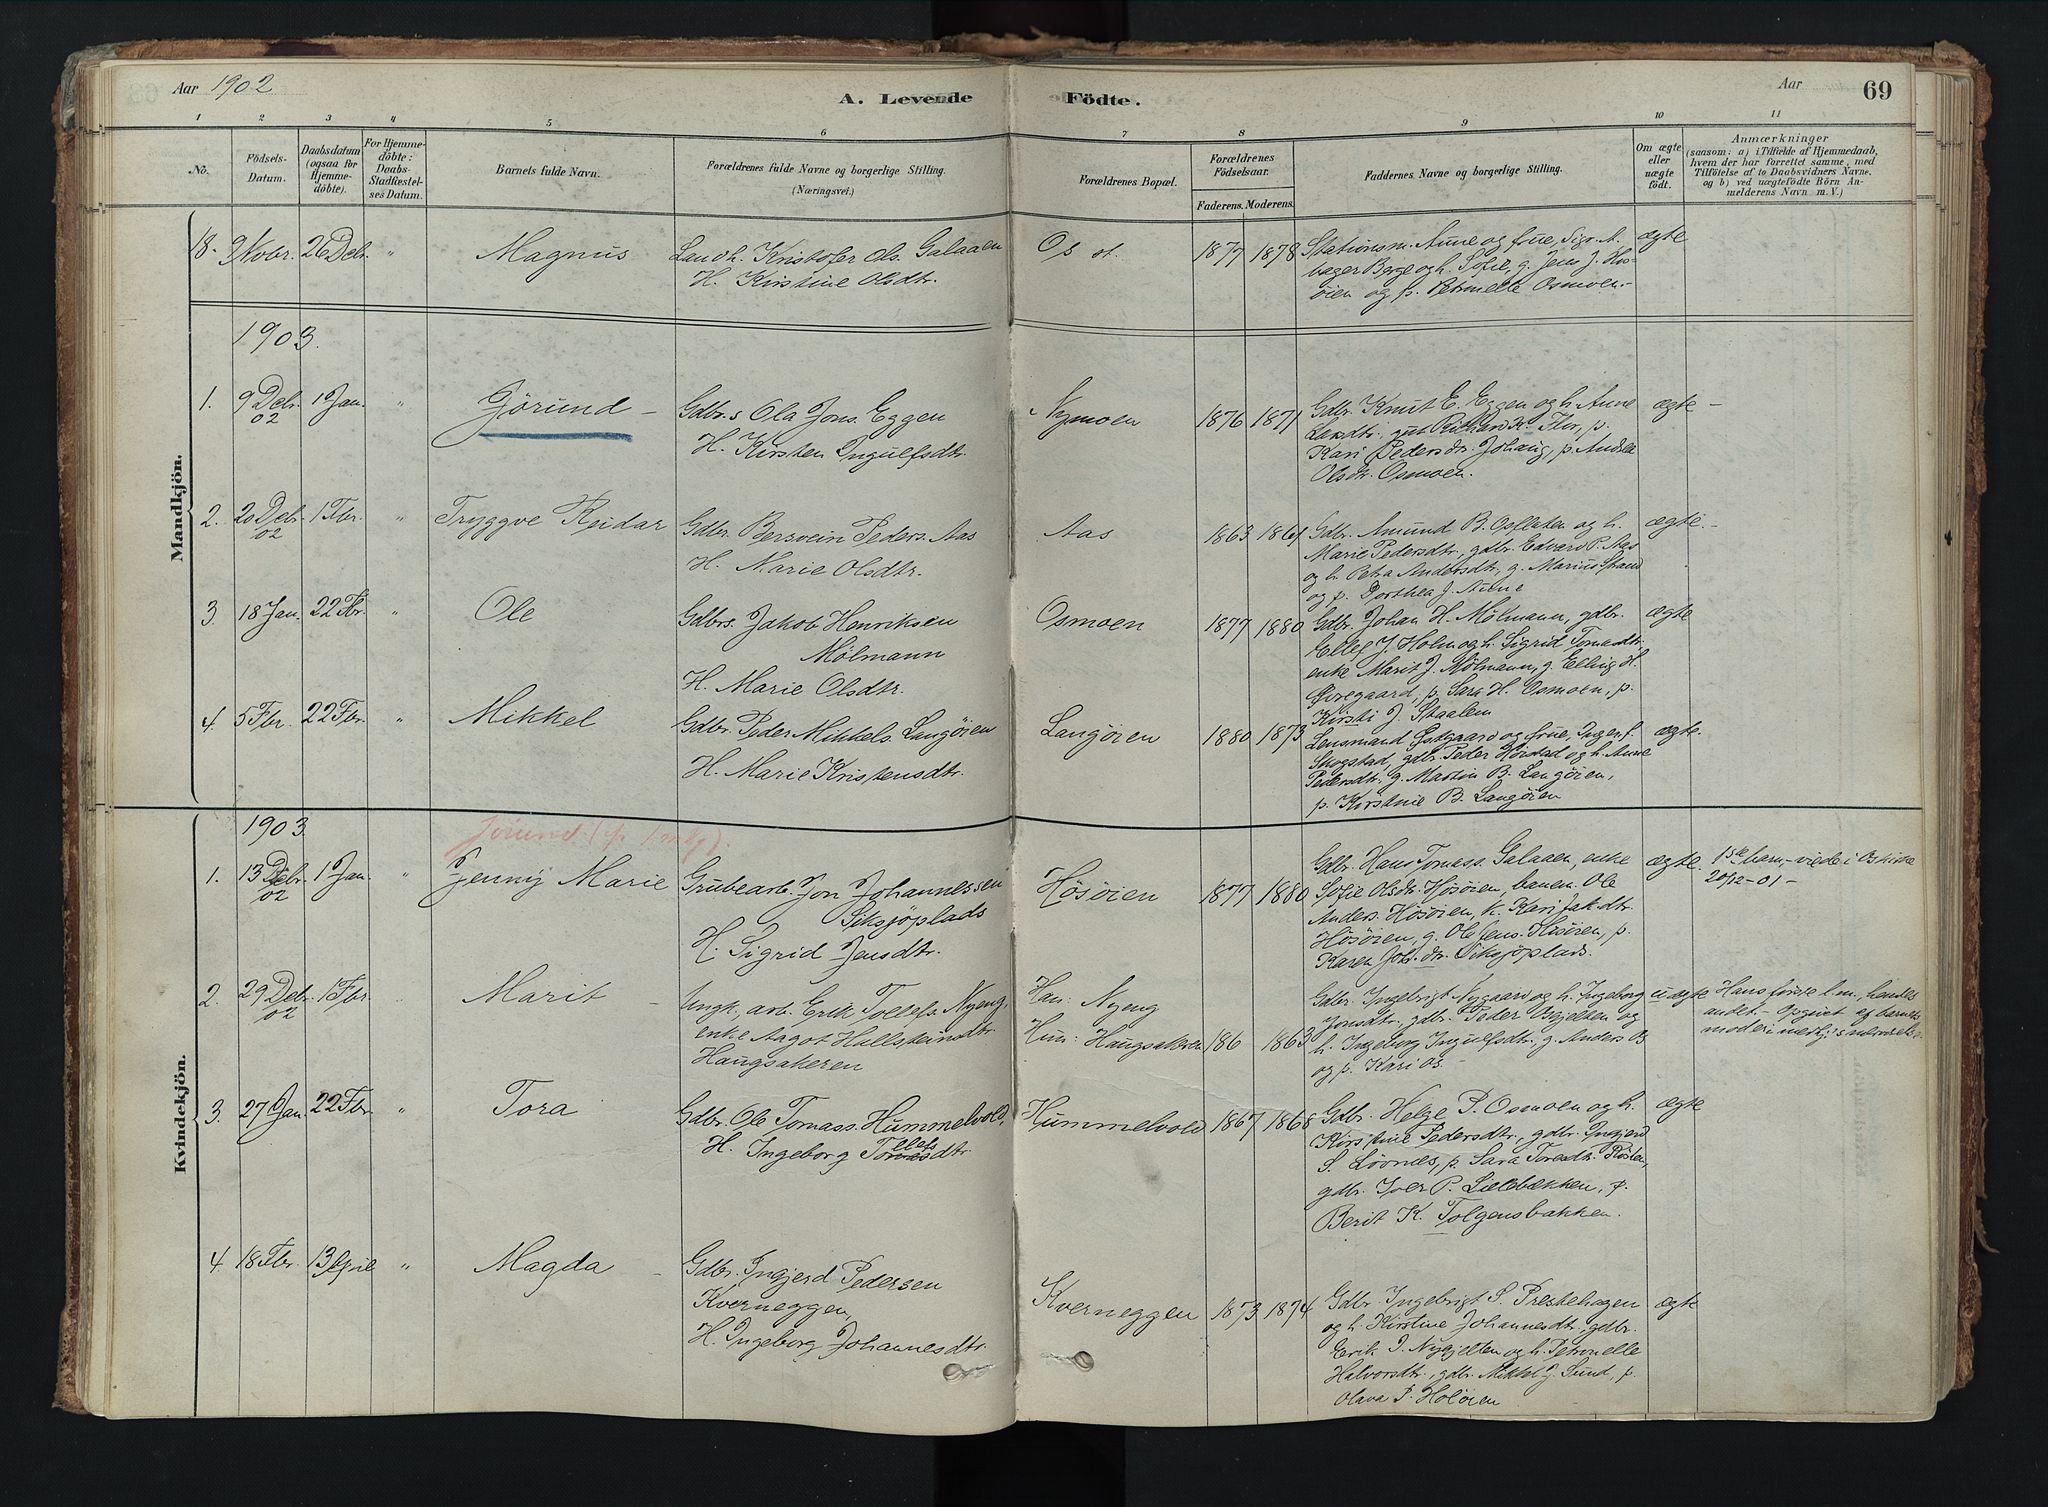 Aar 1902
A. Levende Födte.
Aar
69
1 2 3 4 5 6 7 8 9 10 11
No.
Födsels-
Datum.
Daabsdatum
(ogsaa for
Hjemme-
döbte).
For Hjemme-
döbte:
Daabs-
Stadfæstel-
ses Datum.
Barnets fulde Navn.
Forældrenes fulde Navne og borgerlige Stilling.
(Næringsvei.)
Forældrenes Bopæl.
Forældrenes
Födselsaar.
Faderens. Moderens.
Faddernes Navne og borgerlige Stilling.
Om ægte
eller
uægte
født.
Anmærkninger
(saasom: a) i Tilfælde af Hjemmedaab,
hvem der har forrettet samme, med
Tilföielse af to Daabsvidners Navne.
og b) ved uægtefödte Börn An-
melderens Navn m. V.)
Mandkjön.
18. 9 Novbr. 26 Decbr. " Magnus
Landh. Kristofer Ols. Galaaen
H. Kirstine Olsdtr.
Os st. 1877 1878
Stationsm. Aune og frue, Sigv. A.
bager Berge og h. Sofie, g. Jens J. Hos-
øien og p. Petronelle Osmoen.-
ægte
1903.
1. 9 Decbr. 02 1 Jan. " Jörund -
Gdbr.s Ola Jons. Eggen
H. Kirsten Ingulfsdtr.
Nymoen 1876 1871
Gdbr. Knut E. Eggen og h. Anne
Larsdtr. gut Rikhard K. Flor, p.
Kari Pedersdtr. Johaug, p. Andrea
Olsdtr. Osmoen.
ægte -
2. 20 Decbr. 02 1 Fbr. " Tryggve Reidar
Gdbr. Bersvein Peders. Aas
H. Marie Olsdtr.
Aas 1863 1861
Gdbr. Amund B. Osflaten og h.
Marie Pedersdtr., gdbr. Edvard P. Aas
og h. Petra Andersdtr., g. Marius Strand
og p. Dorthea J. Aune
ægte.-
3. 18 Jan. 22 Fbr. " Ole
Gdbrs. Jakob Henriksen
Mölmann
H. Marie Olsdtr.
Osmoen 1877 1880
Gdbr. Johan H. Mölmann, gdbr.
Ellef J. Holm og h. Sigrid Tomasdtr.
enke Marit J. Mölmann, g. Elling H.
Øvregaard, p. Sara H. Osmoen, p.
Kirsti J. Staalem
ægte
4. 5 Fbr. 22 Fbr. " Mikkel
Gdbr. Peder Mikkels. Langöien
H. Marie Kristensdtr.
Langöien 1880 1873
Lensmand Østgaard og frue, Inger f.
Skogstad, gdbr. Peder Horstad og h. Anne
Pedersdtr. g. Martin B. Langöien,
p. Kirstine B. Langöien
ægte.
Kvindekjön.
1903.
Jörund (
1. 13 Decbr. 02 1 Jan. " Jenny Marie
Grubearb. Jon Johannessen
Siksjöplads
H. Sigrid Jensdtr.
Hösöien 1877 1880
Gdbr. Hans Tomass. Galaaen, enke
Sofie Olsdtr. Hösöien, banem. Ole
Anders. Hösöien, k. Kari Jak.dtr.
Hösöien, g. Ole Jens. Hösöien, p.
Karen Joh.dtr. Siksjöplads.
ægte.
1ste barn,- viede i Os kirke
20/12-01-
2. 29 Decbr. 02 1 Fbr. " Marit -
Ungk., arb. Erik Tollefs. Nyeng,
enke Aagot Hallsteinsdtr.
Haugsakeren
Han: Nyeng
Hun: Haugsakeren 186 1863
Gdbr. Ingebrigt Nygaard og h. Ingeborg
Jonsdtr., gdbr. Peder Oskjelten og
h. Ingeborg Ingulfsdtr., g. Anders Os
og p. Kari Os.
uægte
Hans förste l.m., hendes
andet. - Opgivet af barnets
moder
3. 27 Jan. 22 Fbr. " Tora
Gdbr. Ole Tomass. Hummelvold,
H. Ingeborg dtr.
Hummelvold 1867 1868
Gdbr. Helge P. Osmoen og h.
Kirstine Pedersdtr., gdbr. Ingjerd
S. Lövnes, p. Sara Toresdtr. Röslen,
gdbr. Iver P. Lillebækken, p.
Berit K. Tolgensbakken.
ægte
4. 18 Fbr. 13 April " Magda -
Gdbr. Ingjerd Pedersen
Kverneggen,
H. Ingeborg Johannesdtr.
Kverneggen 1873 1874
Gdbr. Ingebrigt S. Prestehagen
og h. Kirstine Johannesdtr., gdbr.
Erik I. Nykjelten og h. Petronelle
Halvorsdtr., gdbr. Mikkel J. Sund, p.
Olava P. Holöien
ægte